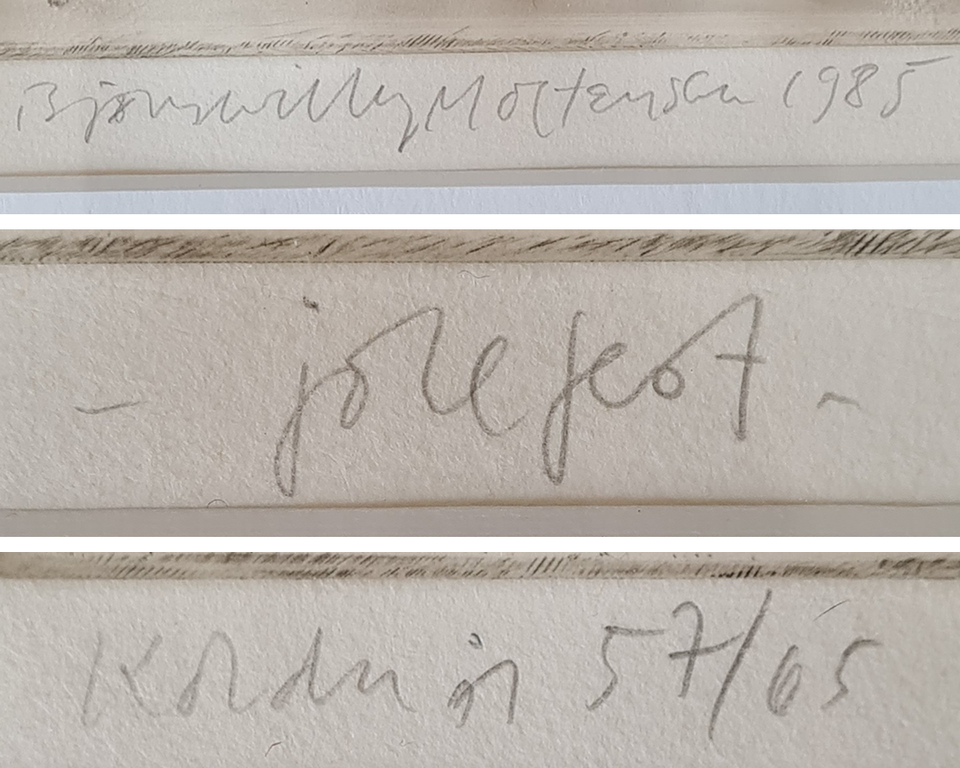 Bjørnwilly Mortensen 1985
- jolefest -
Koldnål 57/65